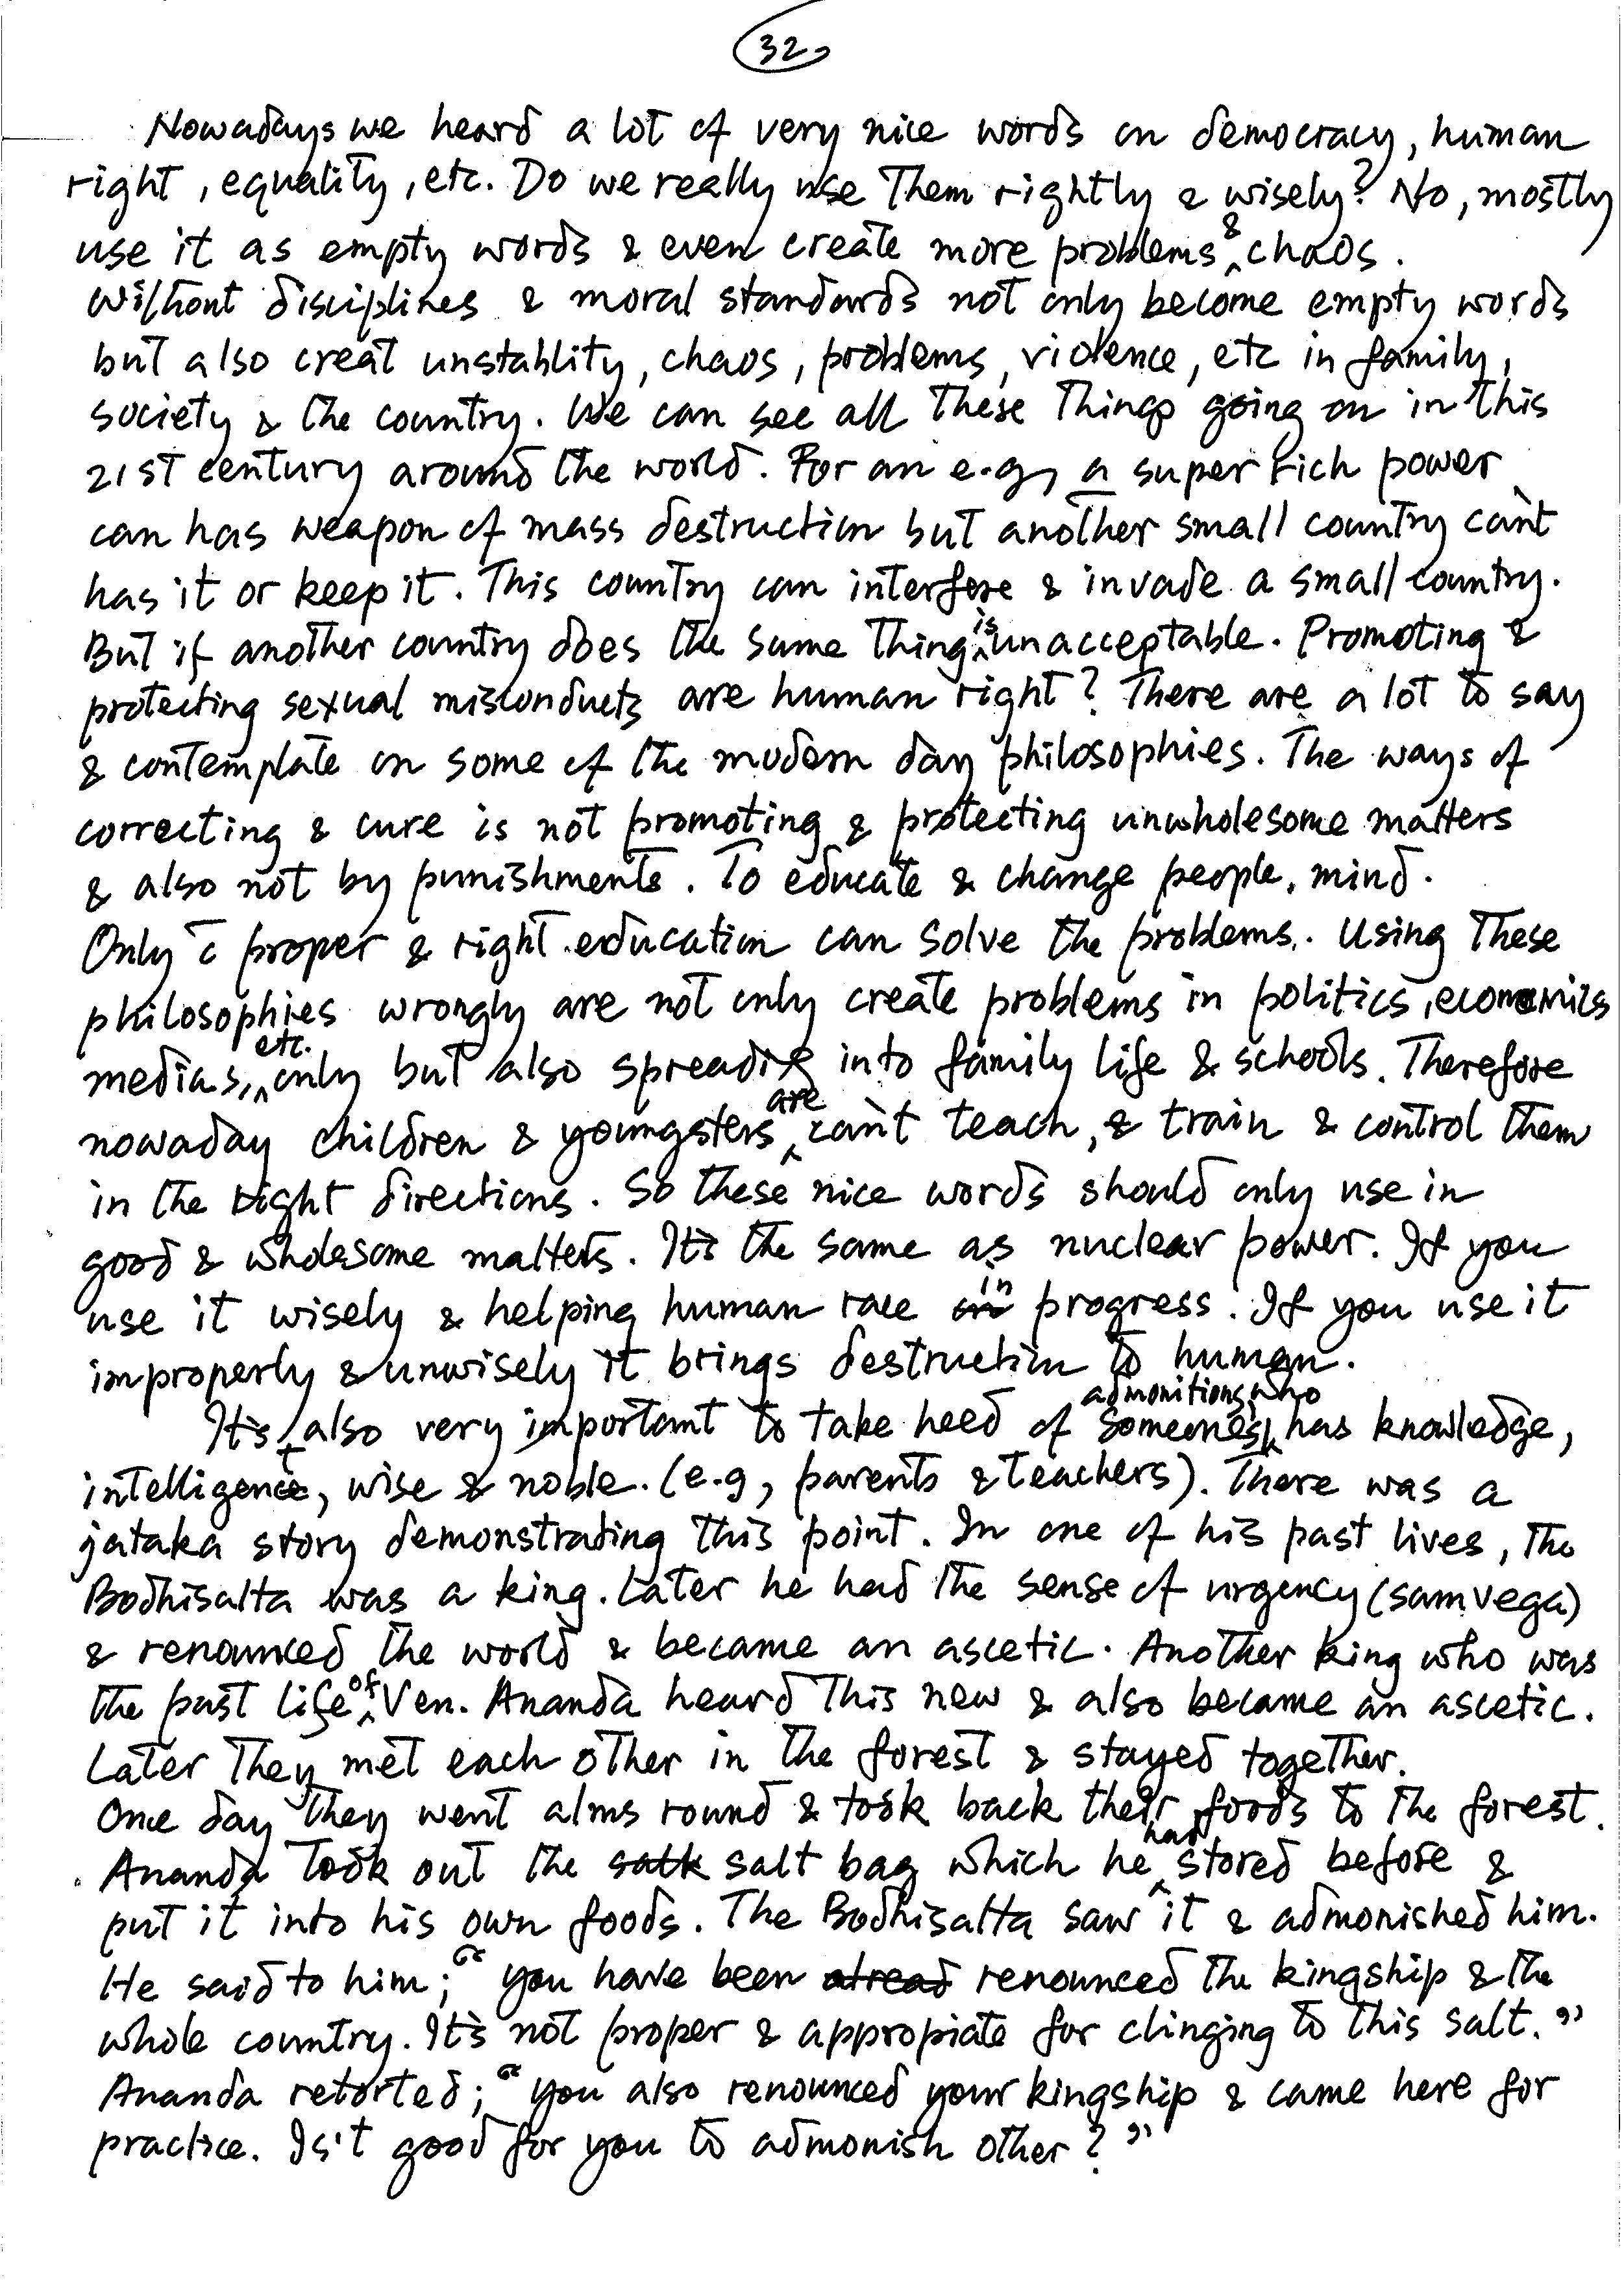 32
Nowadays we heard a lot of very nice words on democracy, human
right, equality, etc. Do we really use them rightly & wisely? No, mostly
use it as empty words & even create more problems & chaos.
Without disciplines & moral standards not only become empty words
but also creat unstablity, chaos, problems, violence, etc in family,
society & the country. We can see all these things going on in this
21st century around the world. For an e.g, a super rich power
can has weapon of mass destruction but another small country can't
has it or keep it. This country can interfere & invade a small country.
But if another country does the same thing is unacceptable. Promoting &
protecting sexual misconducts are human right? There are a lot to say
& contemplate on some of the modern day philosophies. The ways of
correcting & cure is not promoting & protecting unwholesome matters
& also not by punishments. To educate & change people, mind.
Only c̄ proper & right education can solve the problems. Using these
philosophies wrongly are not only create problems in politics, economics
medias, etc. only but also spreading into family life & schools. Therefore
nowaday children & youngsters are can't teach, & train & control them
in the right directions. So these nice words should only use in
good & wholesome matters. It's the same as nuclear power. If you
use it wisely & helping human race in progress. If you use it
improperly & unwisely it brings destruction to human.
It's also very important to take heed of someone's admonitions who has knowledge,
intelligent, wise & noble. (e.g, parents & teachers). There was a
jataka story demonstrating this point. In one of his past lives, the
Bodhisatta was a king. Later he had the sense of urgency (samvega)
& renounced the world & became an ascetic. Another king who was
the past life of Ven. Ananda heard this new & also became an ascetic.
Later they met each other in the forest & stayed together.
One day they went alms round & took back their foods to the forest.
Ananda took out the salt salt bag which he had stored before &
put it into his own foods. The Bodhisatta saw it & admonished him.
He said to him; "you have been alread renounced the kingship & the
whole country. It's not proper & appropiate for clinging to this salt."
Ananda retorted; "you also renounced your kingship & came here for
practice. Is't good for you to admonish other?"